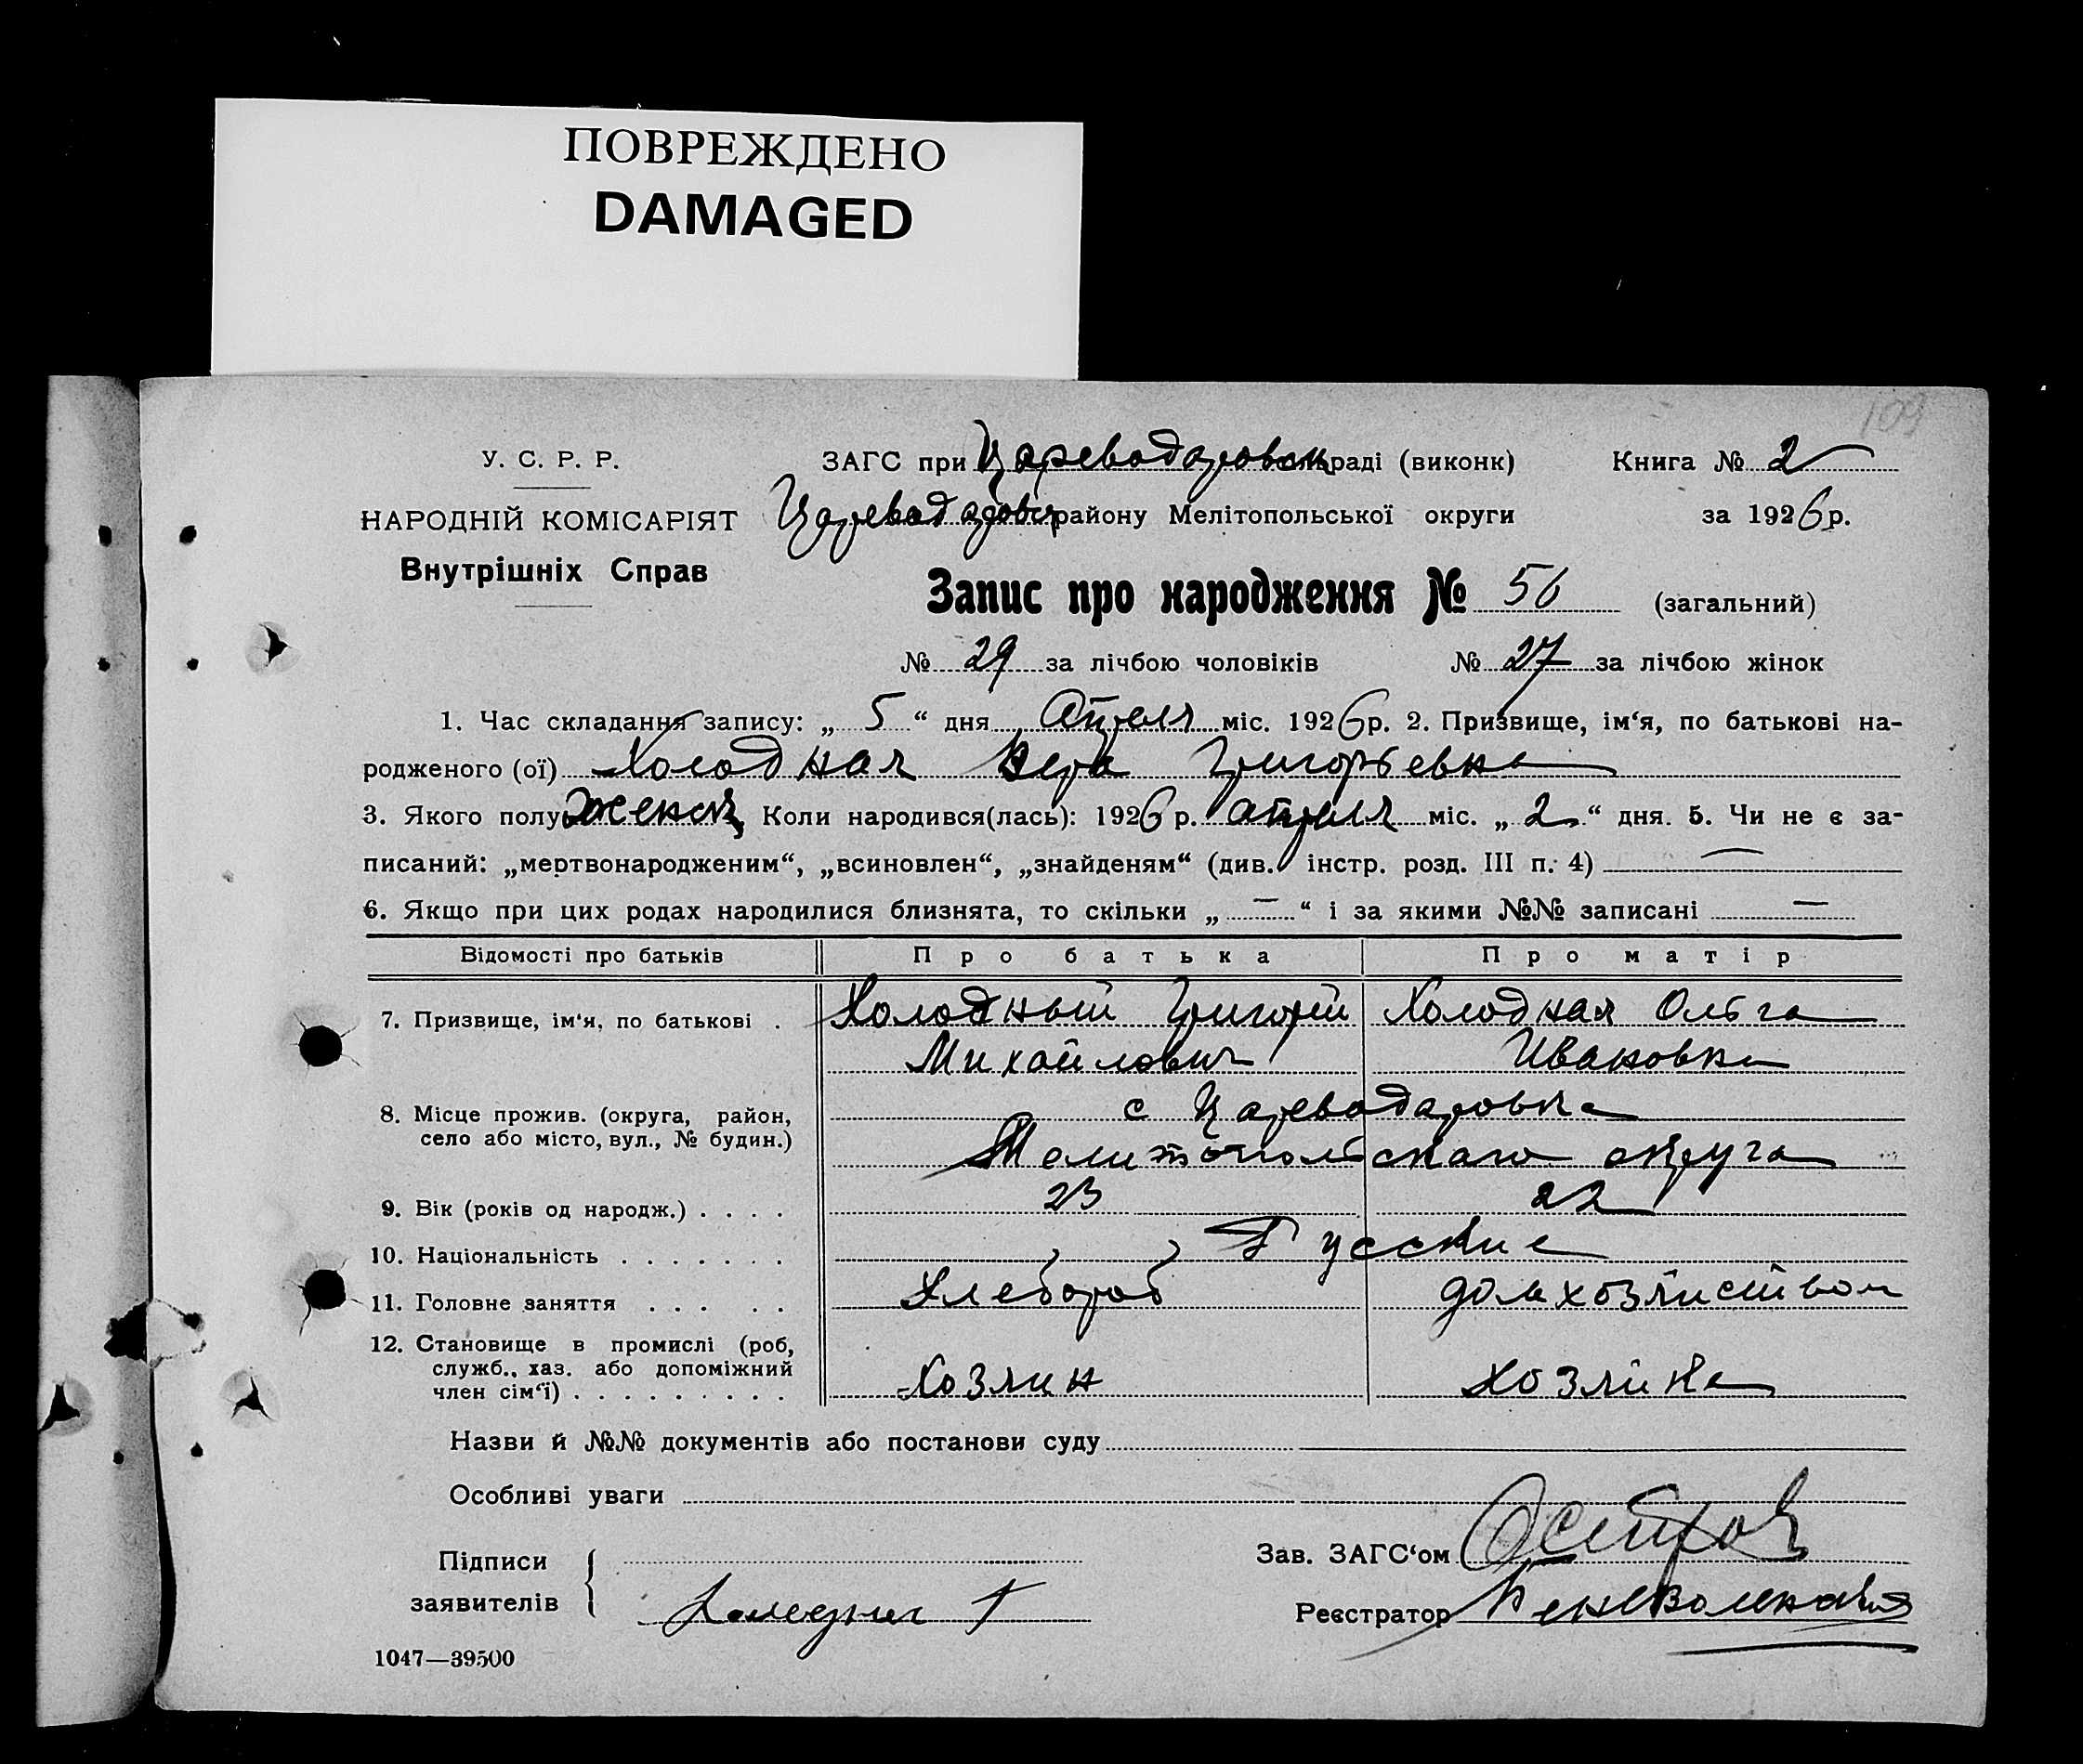 ПОВРЕЖДЕНО
DAMAGED
109
У. С. Р. Р.
НАРОДНІЙ КОМІСАРІЯТ
Внутрішніх Справ
ЗАГС при Цареводаровск раді (виконк) Книга № 2
Цареводаровск району Мелітопольської округи за 1926 р.
Запис про народження № 56 (загальний)
№ 29 за лічбою чоловіків № 27 за лічбою жінок
1. Час складання запису: „ 5 “ дня Апреля міс. 1926 р. 2. Призвище, ім‘я, по батькові на-
родженого (ої) Холодная Вера Григорьевна
3. Якого полу женск Коли народився(лась): 1926 р. апреля міс. „ 2 “ дня. 5. Чи не є за-
писаний: „мертвонародженим“, „всиновлен“, „знайденям“ (див. інстр. розд. III п. 4) —
6. Якщо при цих родах народилися близнята, то скільки „ — “ і за якими №№ записані —
Відомості про батьків Про батька Про матір
7. Призвище, ім‘я, по батькові . Холодный Григорий Холодная Ольга
Михайлович Ивановна
8. Місце прожив. (округа, район, село або місто, вул., № будин.) с Цареводаровка
Мелитопольскаго округа
9. Вік (років од народж.) . . . . 23 22
10. Національність . . . . . . . Русские
11. Головне заняття . . . . . Хлебороб домхозяйством
12. Становище в промислі (роб,
служб., хаз. або допоміжний
член сім‘ї) . . . . . . . . . Хозяин хозяйка
Назви й №№ документів або постанови суду
Особливі уваги
Підписи
заявителів
Зав. ЗАГС‘ом
Реєстратор
1047—39500